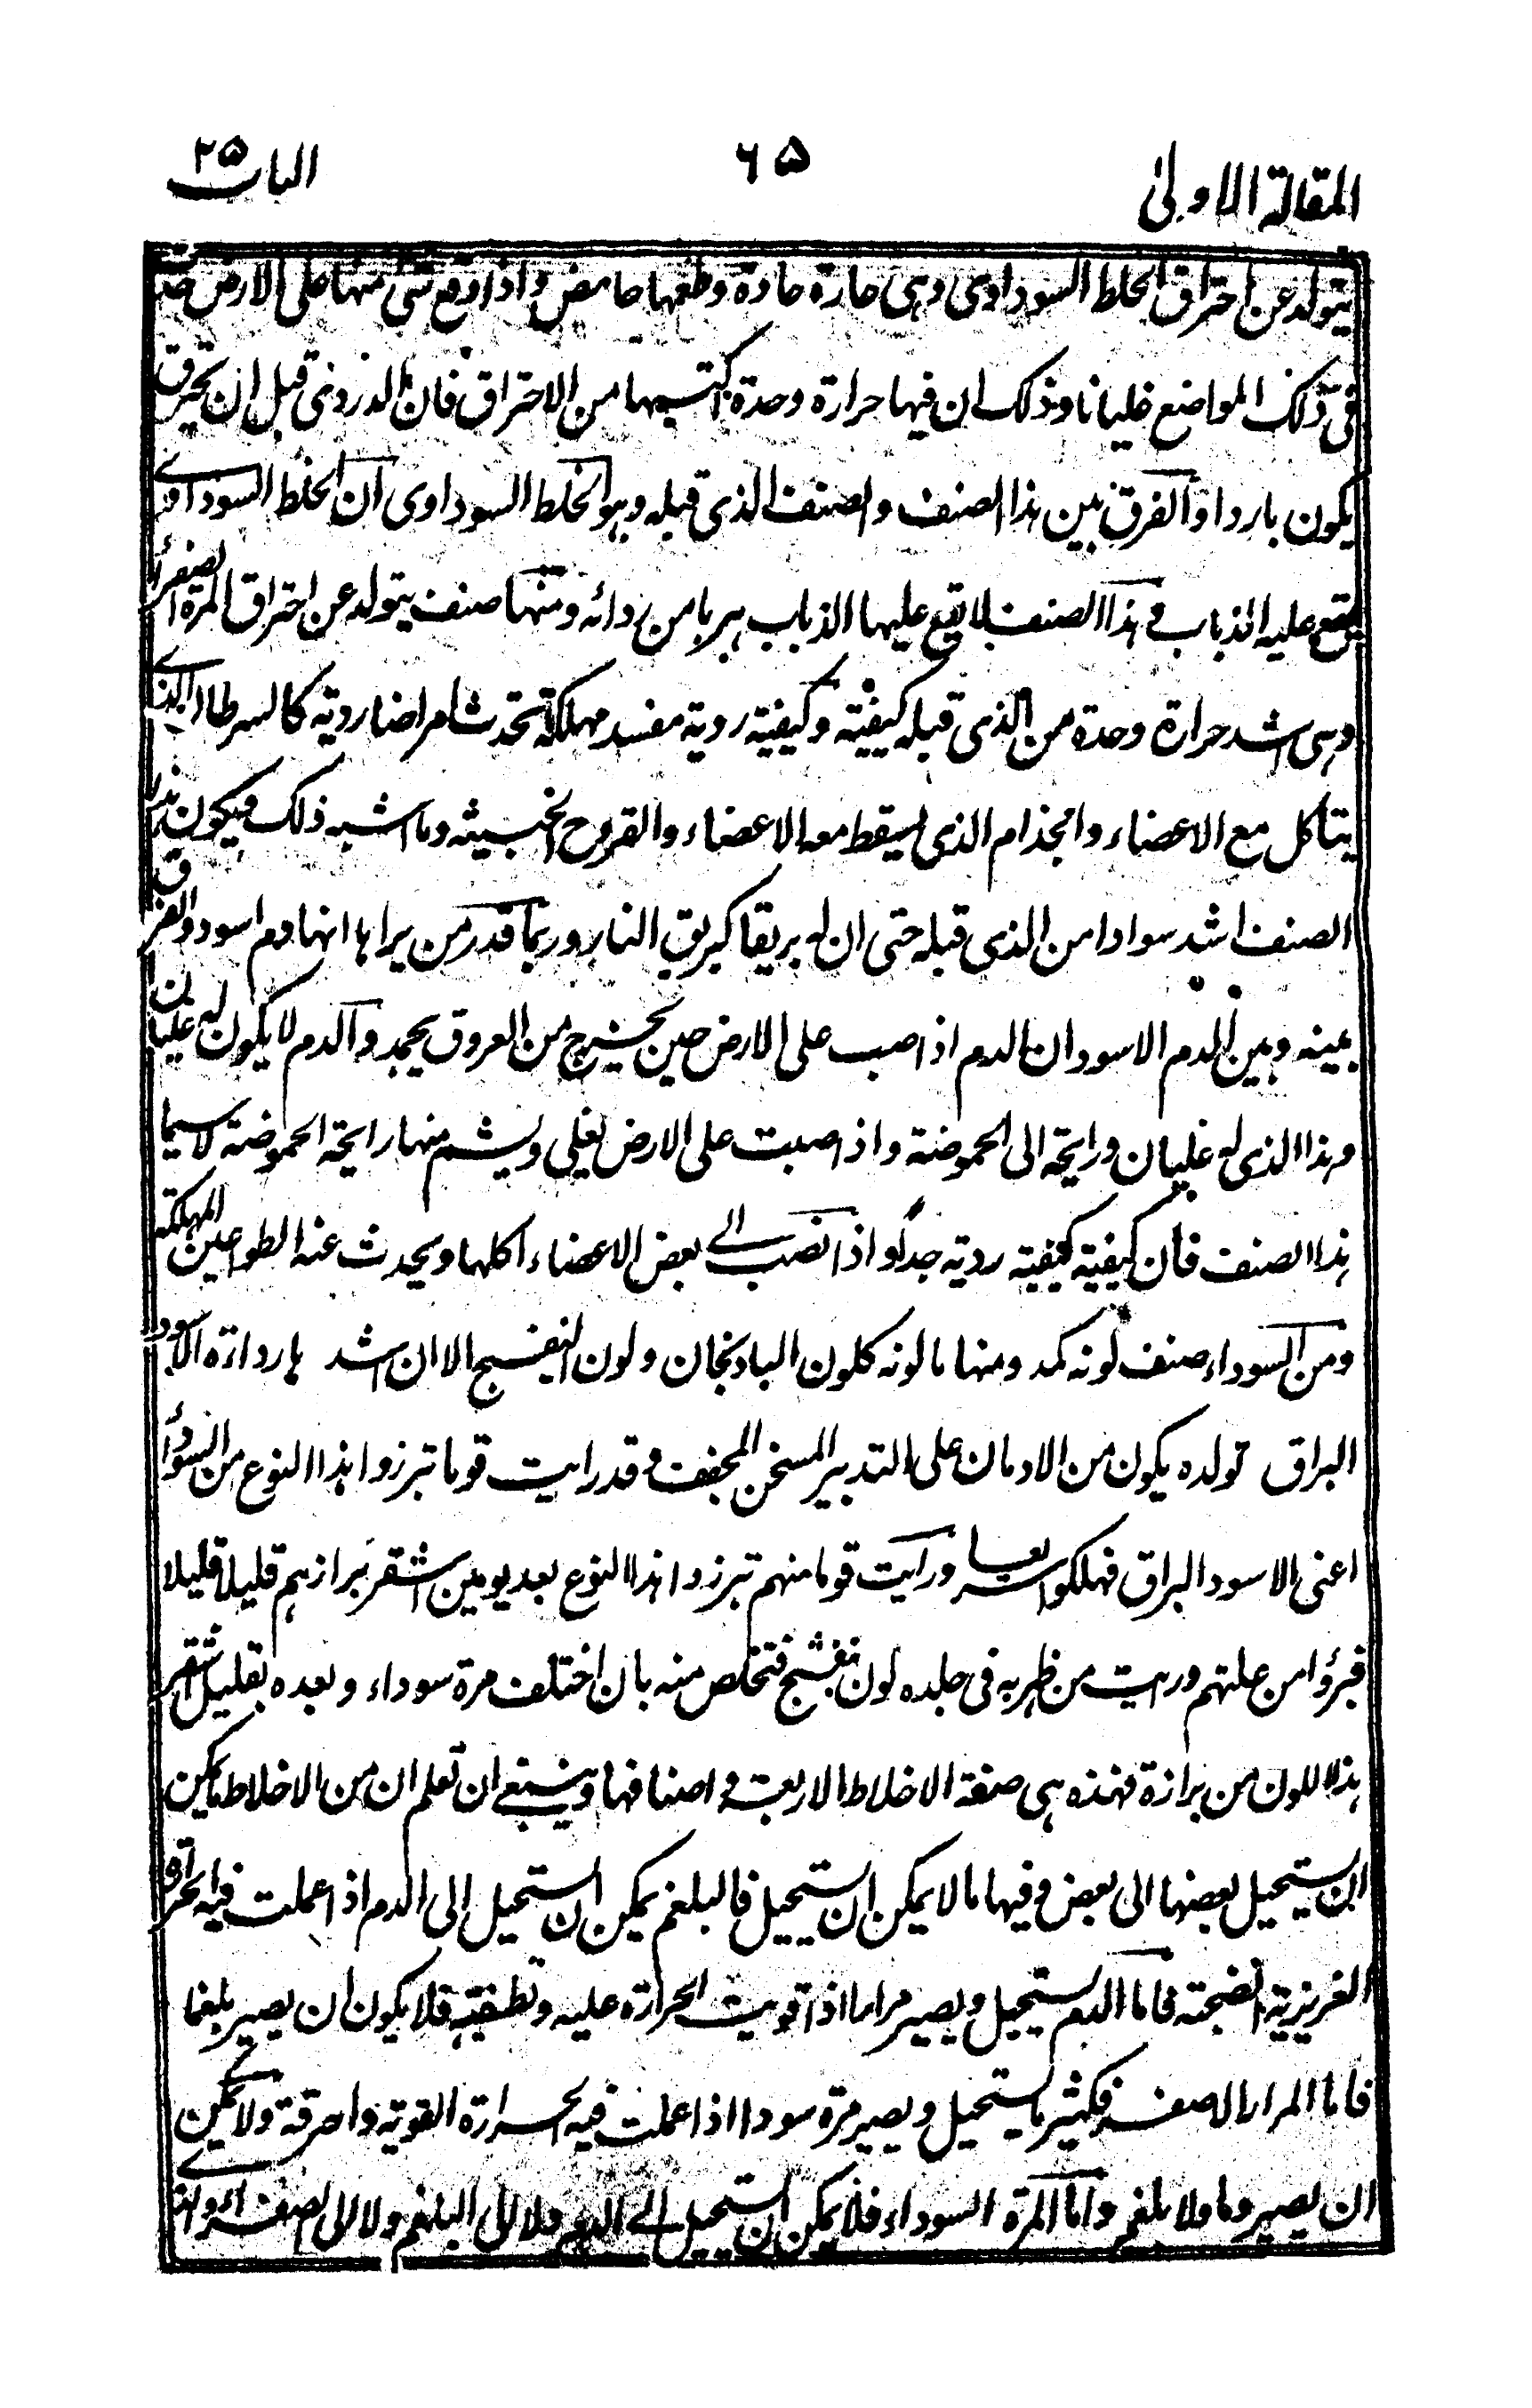 المقالة الاولىٰ ٦٥ الباب ٢٥
يتولد عن احتراق الخلط السوداوى وهى حارة حادة وطعمها حامض واذا وقع شئ منها على الارض
فى تلك المواضع غليانا وذلك ان فيها حرارة وحدة اكتسبها من الاحتراق فان الدردى قبل ان يحترق
يكون باردا والفرق بين هذا الصنف والصنف الذى قبله وهو الخلط السوداوى ان الخلط السوداوى
يقع عليه الذباب وهذا الصنف لا يقع عليها الذباب هربا من ردائه ومنها صنف يتولد عن احتراق المرة الصفراء
وهى اشد حرارة وحدة من الذى قبله كيفيته وكيفية ردية مفسد مهلكة تحدث امراضا ردية كالسرطان الذى
يتاكل مع الاعضاء والجذام الذى يسقط معه الاعضاء والقروح الخبيثه وما اشبه ذلك ويكون هذا
الصنف اشد سوادا من الذى قبله حتى ان له بريقا كبريق النار وربما قدر من يراها انها دم اسود والفرق
بينه وبين الدم الاسود ان الدم اذا صب على الارض حين يخرج من العروق يجمد والدم لا يكون له غليان
وهذا الذى له غليان ورايحه الى الحموضة واذا صبت على الارض يغلى ويشم منها رايحة الحموضة لاسيما
هذا الصنف فان كيفيته كيفية ردية جدا واذا انصب الى بعض الاعضاء اكلها ويحدث عنه الطواعين المهلكة
ومن السوداء صنف لونه كمد ومنها ما لونه كلون الباذنجان ولون البنفسج الا ان اشد ها رداءة الاسود
البراق تولده يكون من الادمان على التدبير المسخن المجفف وقد رايت قوما تبرزوا هذا النوع من السوداء
اعنى الاسود البراق فهلكوا سريعا ورايت قوما منهم تبرزوا هذا النوع بعد يومين اشقر برازهم قليلا قليلا
فبرؤا من علتهم ورايت من ظهر به فى جلده لون بنفسج فتخلص منه بان اختلف مرة سوداء وبعده بقليل اشقر
هذا اللون من برازة فهذه هى صفة الاخلاط الاربعة واصنافها وينبغى ان تعلم ان من الاخلاط ما يمكن
ان يستحيل بعضها الى بعض وفيها ما لا يمكن ان يستحيل فالبلغم يمكن ان يستحيل الى الدم اذا عملت فيه الحرارة
الغريزية انضجته فاما الدم يستحيل ويصير مرارا اذا قويت الحرارة عليه وتطفيه فلا يكون ان يصير بلغما
فاما المرار الاصفر فكثير ما يستحيل ويصير مرة سودا اذا عملت فيه الحرارة القوية واحرقة ولا يمكن
ان يصير دما ولا بلغم واما المرة السوداء فلا يمكن ان يستحيل الى الدم ولا الى البلغم ولا الى الصفراء